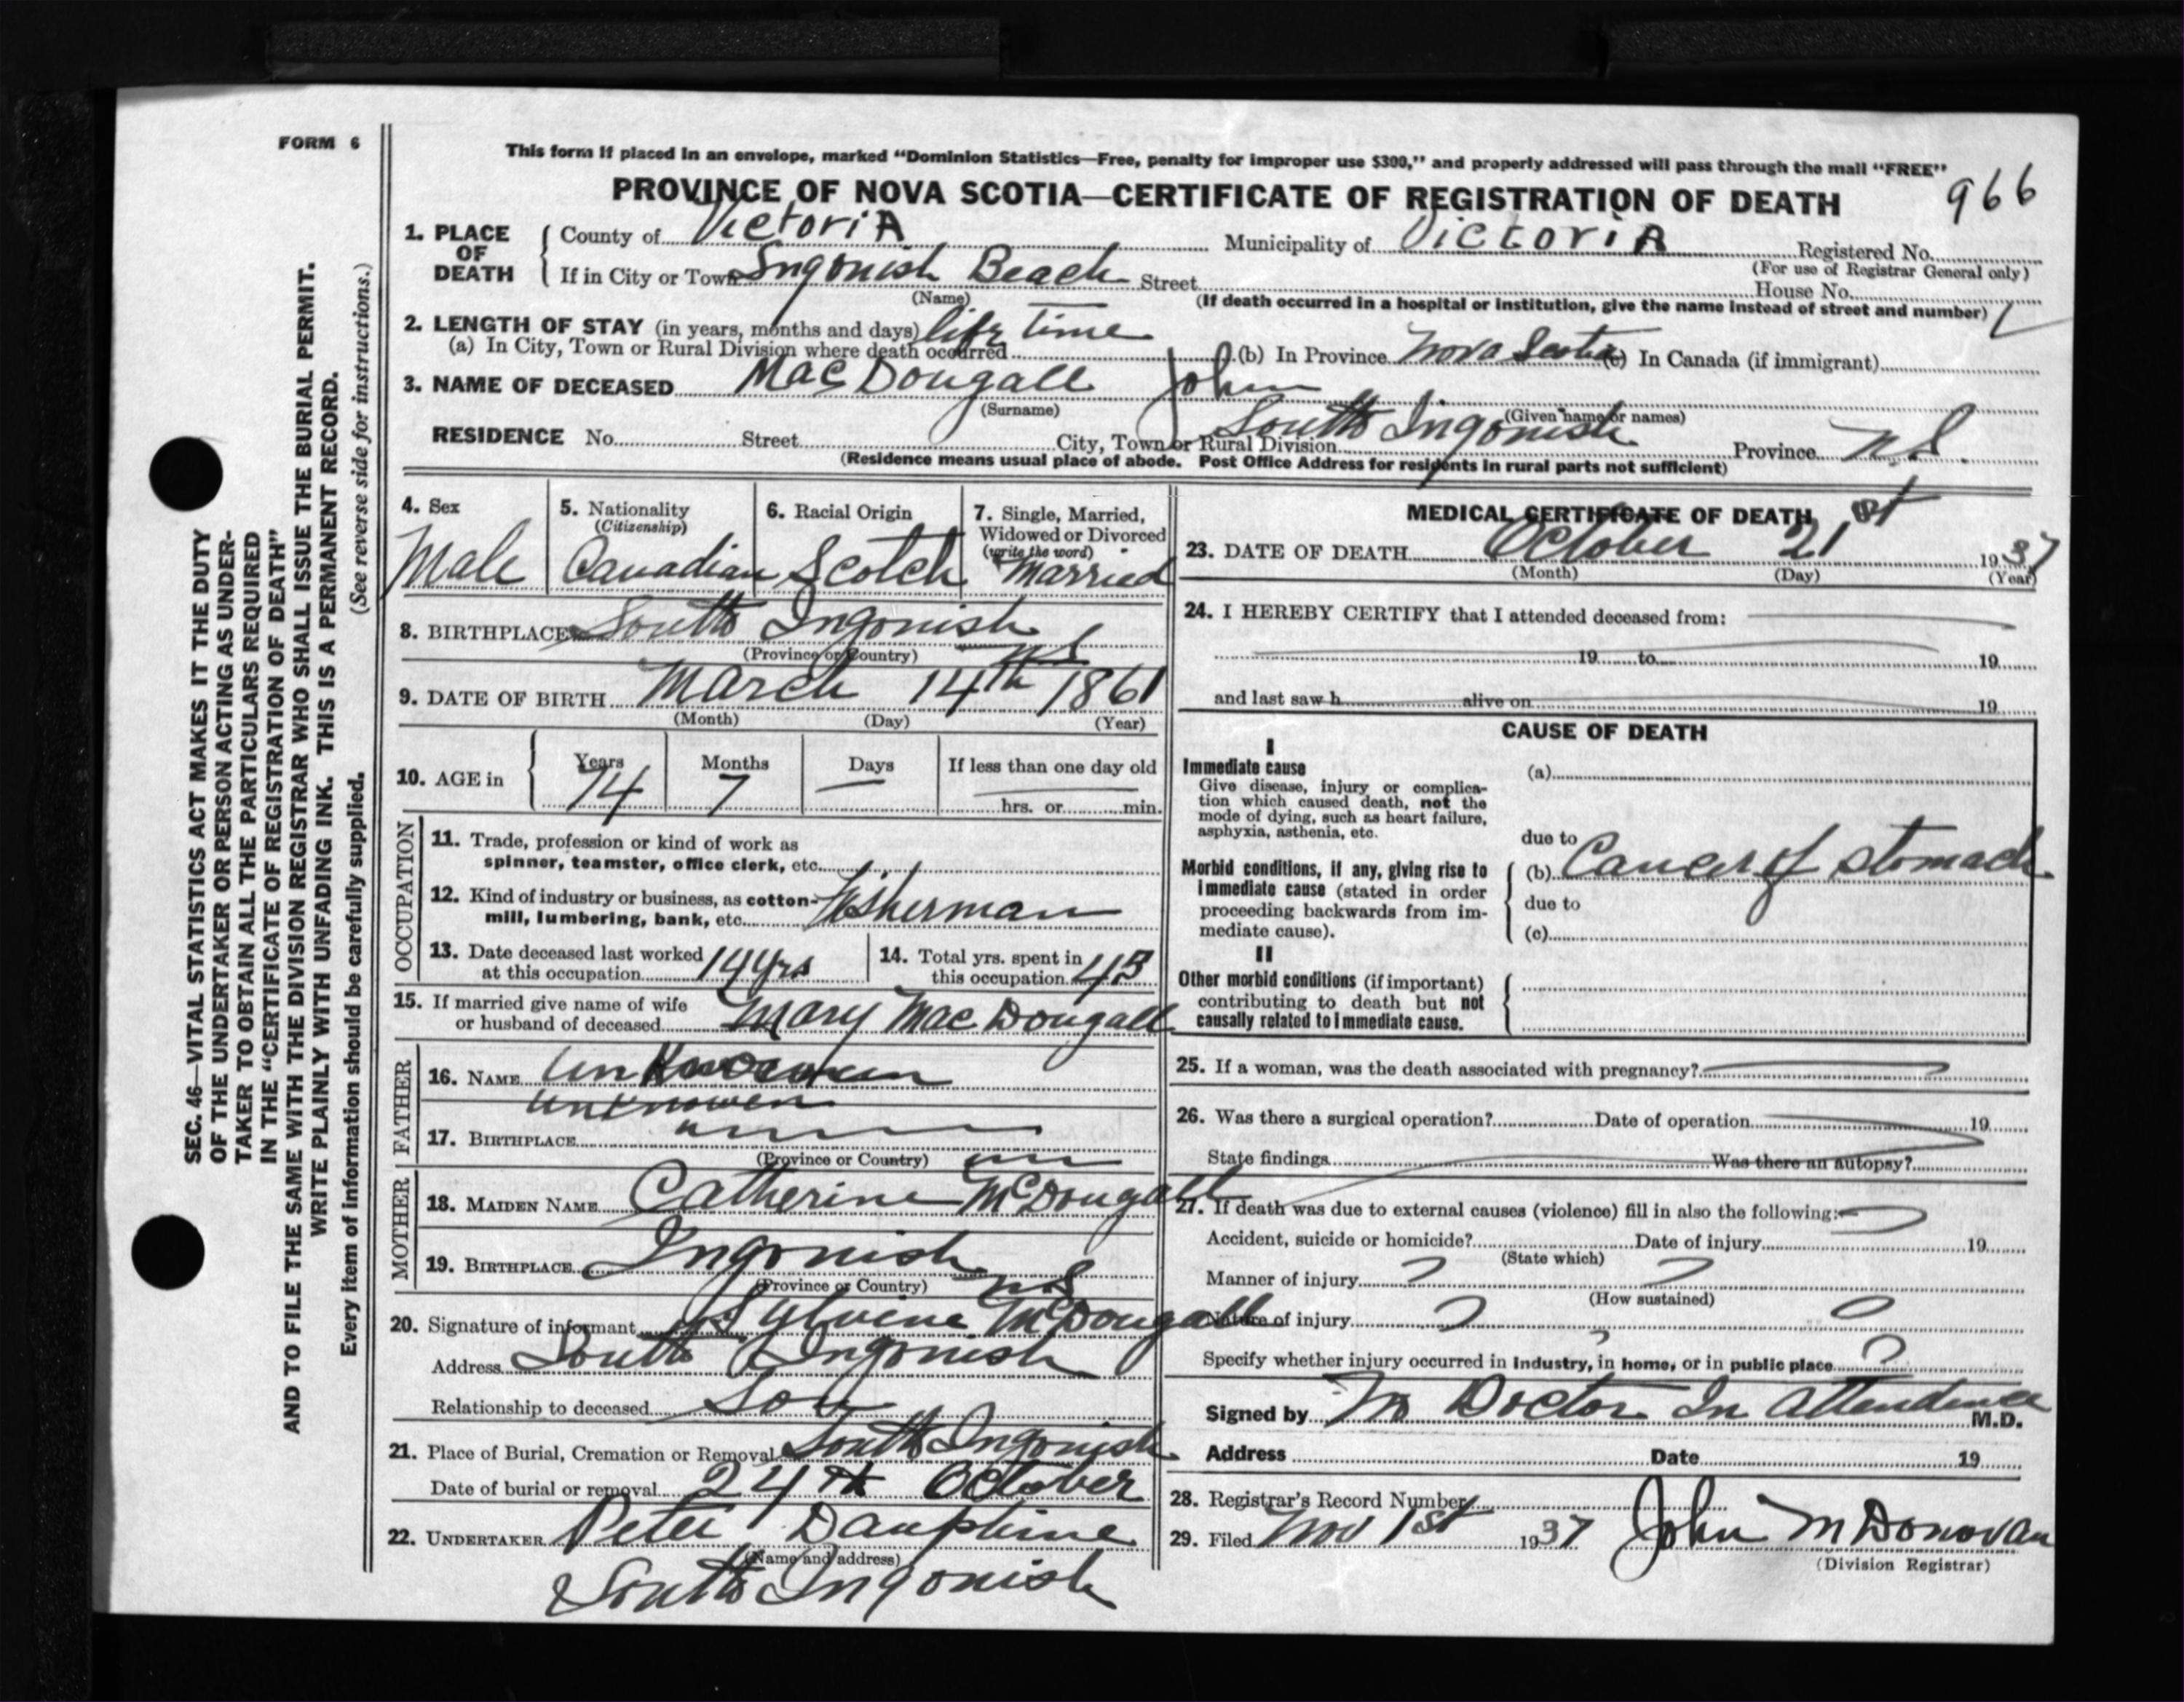 FORM 6
This form if placed in an envelope, marked "Dominion Statistics—Free, penalty for improper use $300," and properly addressed will pass through the mail "FREE"
PROVINCE OF NOVA SCOTIA—CERTIFICATE OF REGISTRATION OF DEATH
966
1. PLACE OF DEATH { County of Victoria Municipality of Victoria Registered No.
(For use of Registrar General only)
If in City or Town Ingonish Beach Street House No.
(Name) (If death occurred in a hospital or institution, give the name instead of street and number)
2. LENGTH OF STAY (in years, months and days) life time
(a) In City, Town or Rural Division where death occurred (b) In Province Nova Scotia (c) In Canada (if immigrant)
3. NAME OF DECEASED MacDougall John
(Surname) (Given name or names)
RESIDENCE No. Street City, Town or Rural Division South Ingonish Province N.S.
(Residence means usual place of abode. Post Office Address for residents in rural parts not sufficient)
4. Sex Male
5. Nationality (Citizenship) Canadian
6. Racial Origin Scotch
7. Single, Married, Widowed or Divorced (write the word) Married
8. BIRTHPLACE South Ingonish
(Province or Country) NS
9. DATE OF BIRTH March 14th 1861
(Month) (Day) (Year)
10. AGE in { Years 74 Months 7 Days — If less than one day old
hrs. or min.
OCCUPATION
11. Trade, profession or kind of work as
spinner, teamster, office clerk, etc.
12. Kind of industry or business, as cotton-
mill, lumbering, bank, etc. Fisherman
13. Date deceased last worked
at this occupation 14 yrs
14. Total yrs. spent in
this occupation 45
15. If married give name of wife
or husband of deceased Mary MacDougall
FATHER
16. NAME Unknowen
unknowen
17. BIRTHPLACE
(Province or Country)
MOTHER
18. MAIDEN NAME Catherine McDougall
19. BIRTHPLACE Ingonish
(Province or Country) NS
20. Signature of informant Sylvene McDougall
Address South Ingonish
Relationship to deceased Son
21. Place of Burial, Cremation or Removal South Ingonish
Date of burial or removal 24th October
22. UNDERTAKER Peter Dauphine
(Name and address)
South Ingonish
MEDICAL CERTIFICATE OF DEATH
23. DATE OF DEATH October 21st 1937
(Month) (Day) (Year)
24. I HEREBY CERTIFY that I attended deceased from:
19 to 19
and last saw h alive on 19
CAUSE OF DEATH
I
Immediate cause (a)
Give disease, injury or complica-
tion which caused death, not the
mode of dying, such as heart failure,
asphyxia, asthenia, etc.
due to
Morbid conditions, if any, giving rise to (b) Cancer of stomach
immediate cause (stated in order due to
proceeding backwards from im-
mediate cause). (c)
II
Other morbid conditions (if important)
contributing to death but not
causally related to immediate cause.
25. If a woman, was the death associated with pregnancy?
26. Was there a surgical operation? Date of operation 19
State findings Was there an autopsy?
27. If death was due to external causes (violence) fill in also the following:
Accident, suicide or homicide? Date of injury 19
(State which)
Manner of injury
(How sustained)
Nature of injury
Specify whether injury occurred in industry, in home, or in public place ?
Signed by No Doctor In Attendence M.D.
Address Date 19
28. Registrar's Record Number
29. Filed Nov 1st 1937 John M Donovan
(Division Registrar)
SEC. 46—VITAL STATISTICS ACT MAKES IT THE DUTY
OF THE UNDERTAKER OR PERSON ACTING AS UNDER-
TAKER TO OBTAIN ALL THE PARTICULARS REQUIRED
IN THE "CERTIFICATE OF REGISTRATION OF DEATH"
AND TO FILE THE SAME WITH THE DIVISION REGISTRAR WHO SHALL ISSUE THE BURIAL PERMIT.
WRITE PLAINLY WITH UNFADING INK. THIS IS A PERMANENT RECORD.
Every item of information should be carefully supplied. (See reverse side for instructions.)